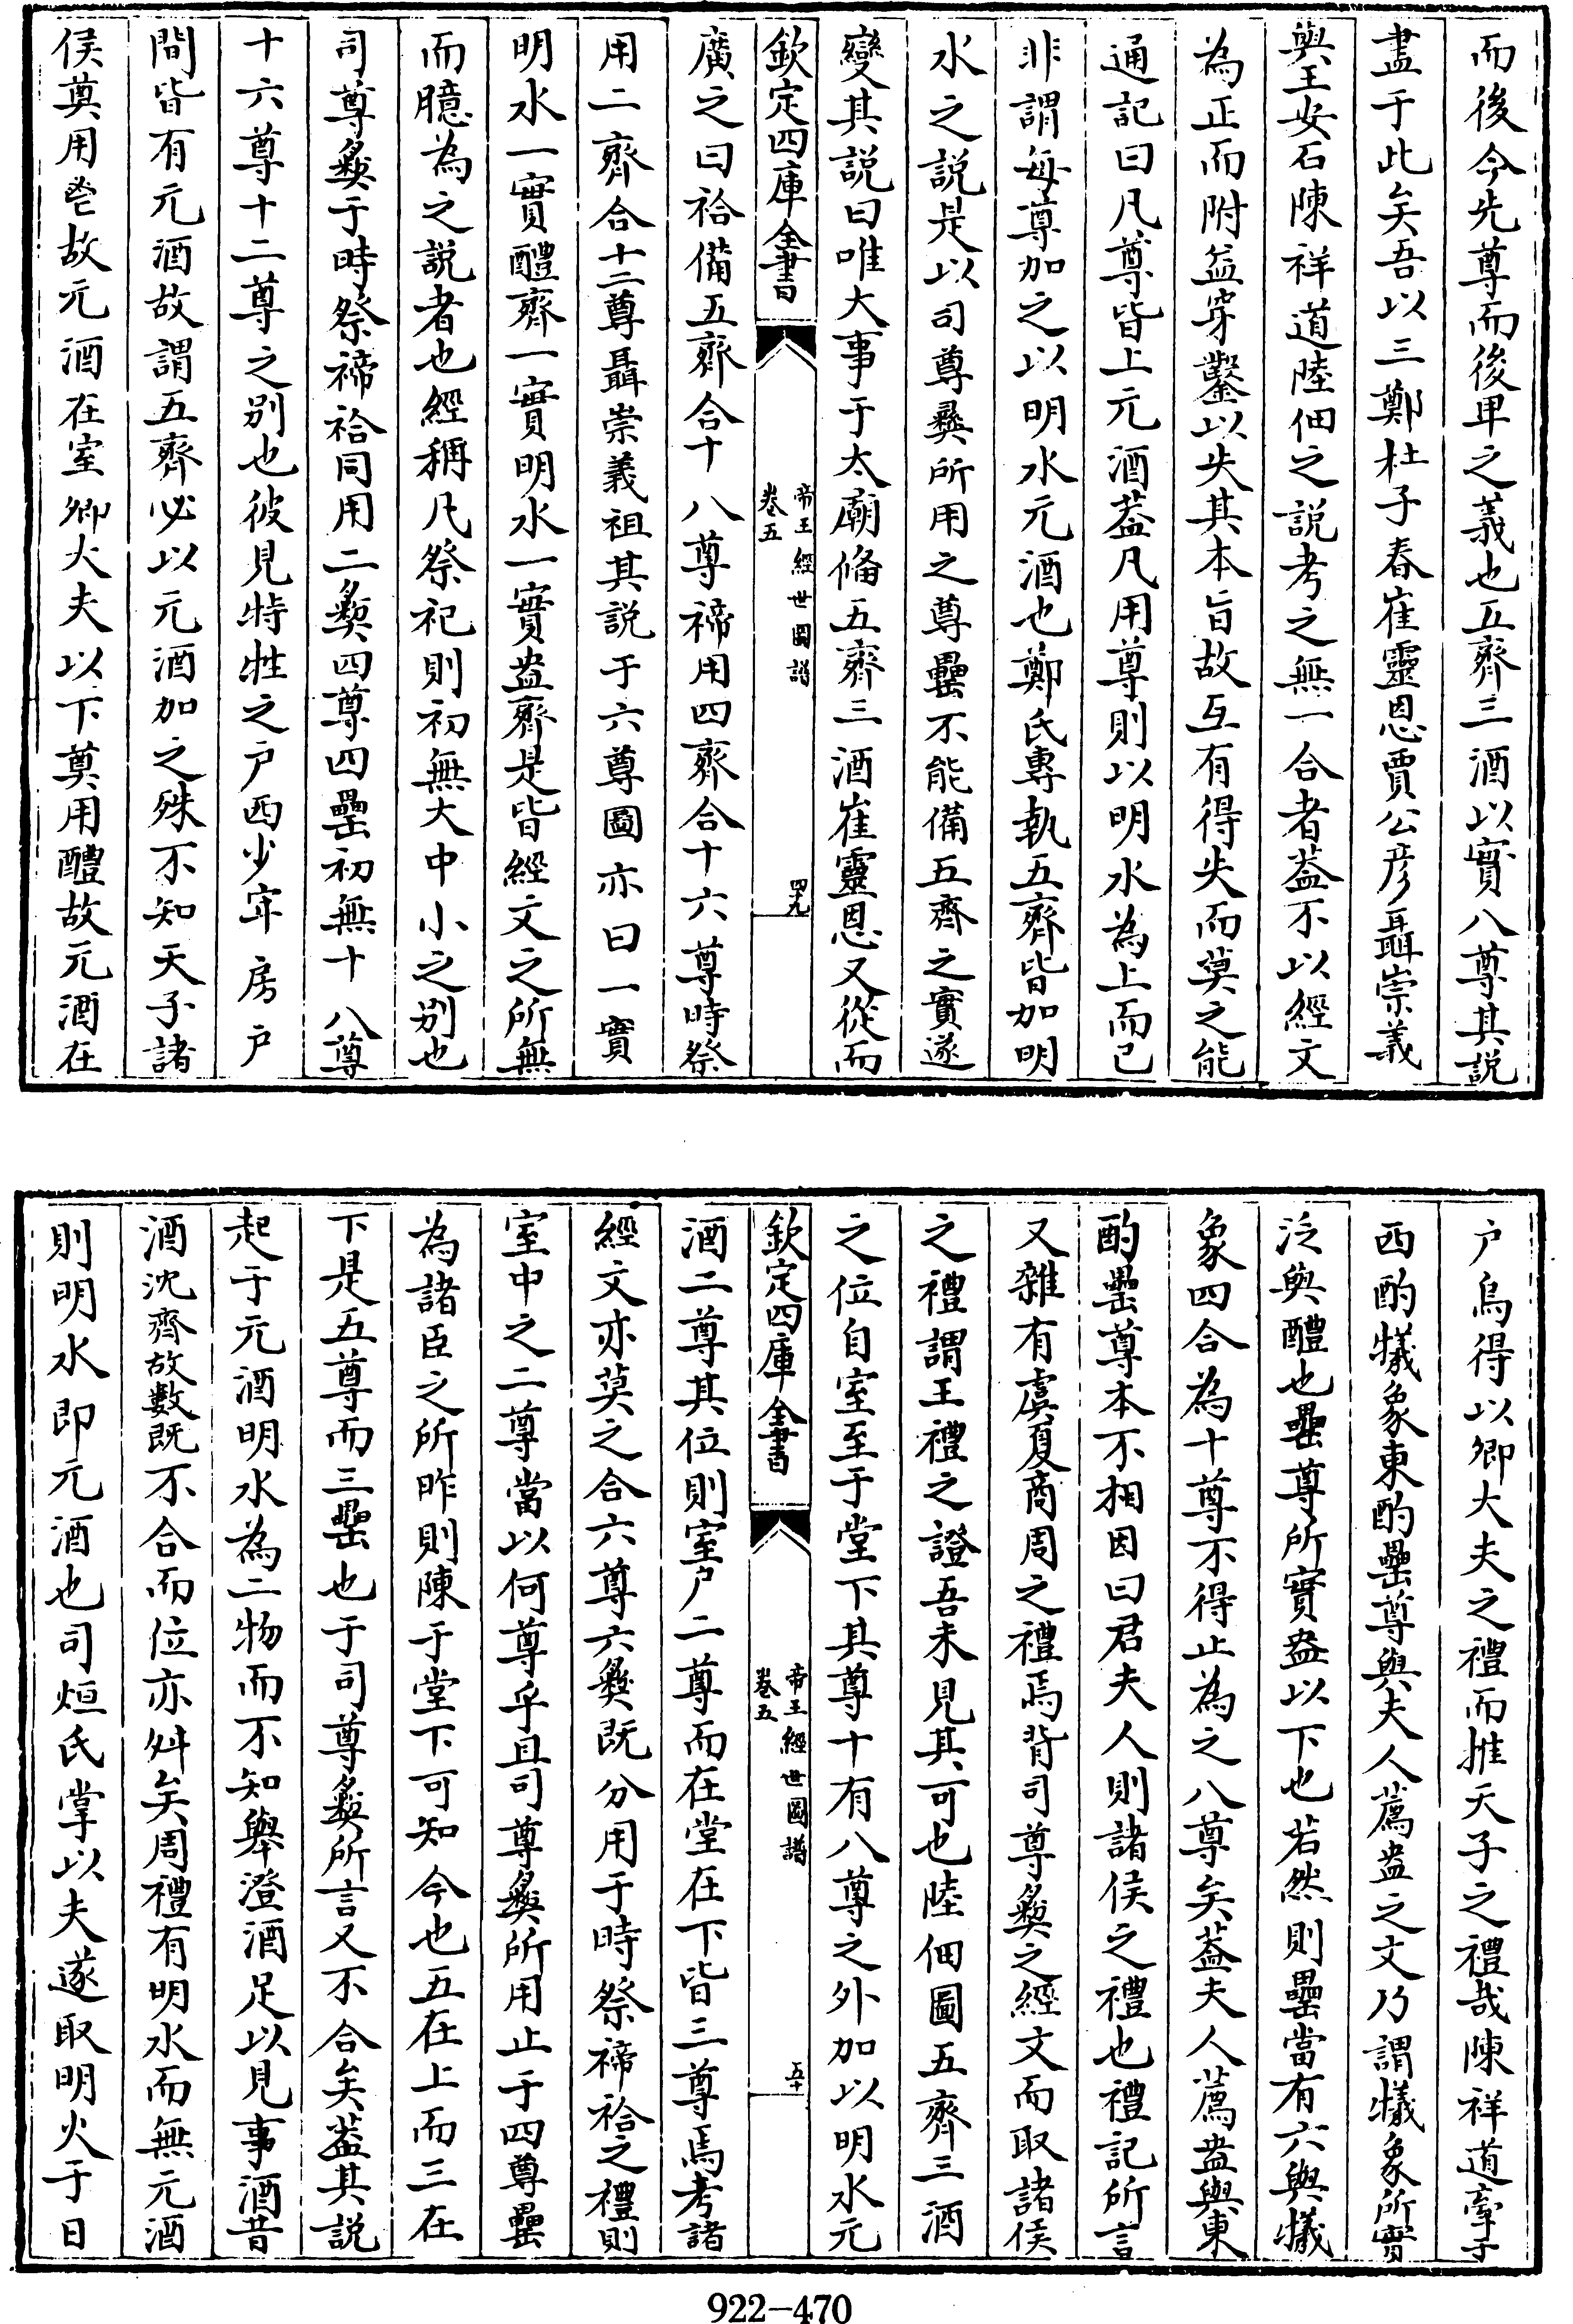 而後今先尊而後卑之義也五齊三酒以實八尊其説
盡于此矣吾以三鄭杜子春崔靈恩賈公彦聶崇義
與王安石陳祥道陸佃之説考之無一合者葢不以經文
為正而附益穿鑿以失其本旨故互有得失而莫之能
通記曰凡尊皆上元酒葢凡用尊則以明水為上而已
非謂每尊加之以明水元酒也鄭氏專執五齊皆加明
水之説是以司尊彛所用之尊罍不能備五齊之實遂
變其説曰唯大事于太廟偹五齊三酒崔靈恩又從而
欽定四庫全書
帝王經世圖譜
卷五
四十九
廣之曰祫備五齊合十八尊禘用四齊合十六尊時祭
用二齊合十二尊聶崇義祖其説于六尊圖亦曰一實
明水一實醴齊一實明水一實盎齊是皆經文之所無
而臆為之説者也經稱凡祭祀則初無大中小之别也
司尊彛于時祭禘祫同用二彛四尊四罍初無十八尊
十六尊十二尊之别也彼見特牲之户西少牢房户
間皆有元酒故謂五齊必以元酒加之殊不知天子諸
侯奠用鬯故元酒在室卿大夫以下奠用醴故元酒在
户鳥得以卿大夫之禮而推天子之禮哉陳祥道牽于
西酌犧象東酌罍尊與夫人薦盎之文乃謂犧象所實
泛與醴也罍尊所實盎以下也若然則罍當有六與犧
象四合為十尊不得止為之八尊矣葢夫人薦盎與東
酌罍尊本不相因曰君夫人則諸侯之禮也禮記所言
又雜有虞夏商周之禮焉背司尊彛之經文而取諸侯
之禮謂王禮之證吾未見其可也陸佃圖五齊三酒
之位自室至于堂下其尊十有八尊之外加以明水元
欽定四庫全書
帝王經世圖譜
卷五
五十
酒二尊其位則室户二尊而在堂在下皆三尊焉考諸
經文亦莫之合六尊六彛既分用于時祭禘祫之禮則
室中之二尊當以何尊乎且司尊彛所用止于四尊罍
為諸臣之所昨則陳于堂下可知今也五在上而三在
下是五尊而三罍也于司尊彛所言又不合矣葢其説
起于元酒明水為二物而不知舉澄酒足以見事酒昔
酒沈齊故數既不合而位亦舛矣周禮有明水而無元酒
則明水即元酒也司烜氏掌以夫遂取明火于日
922-470